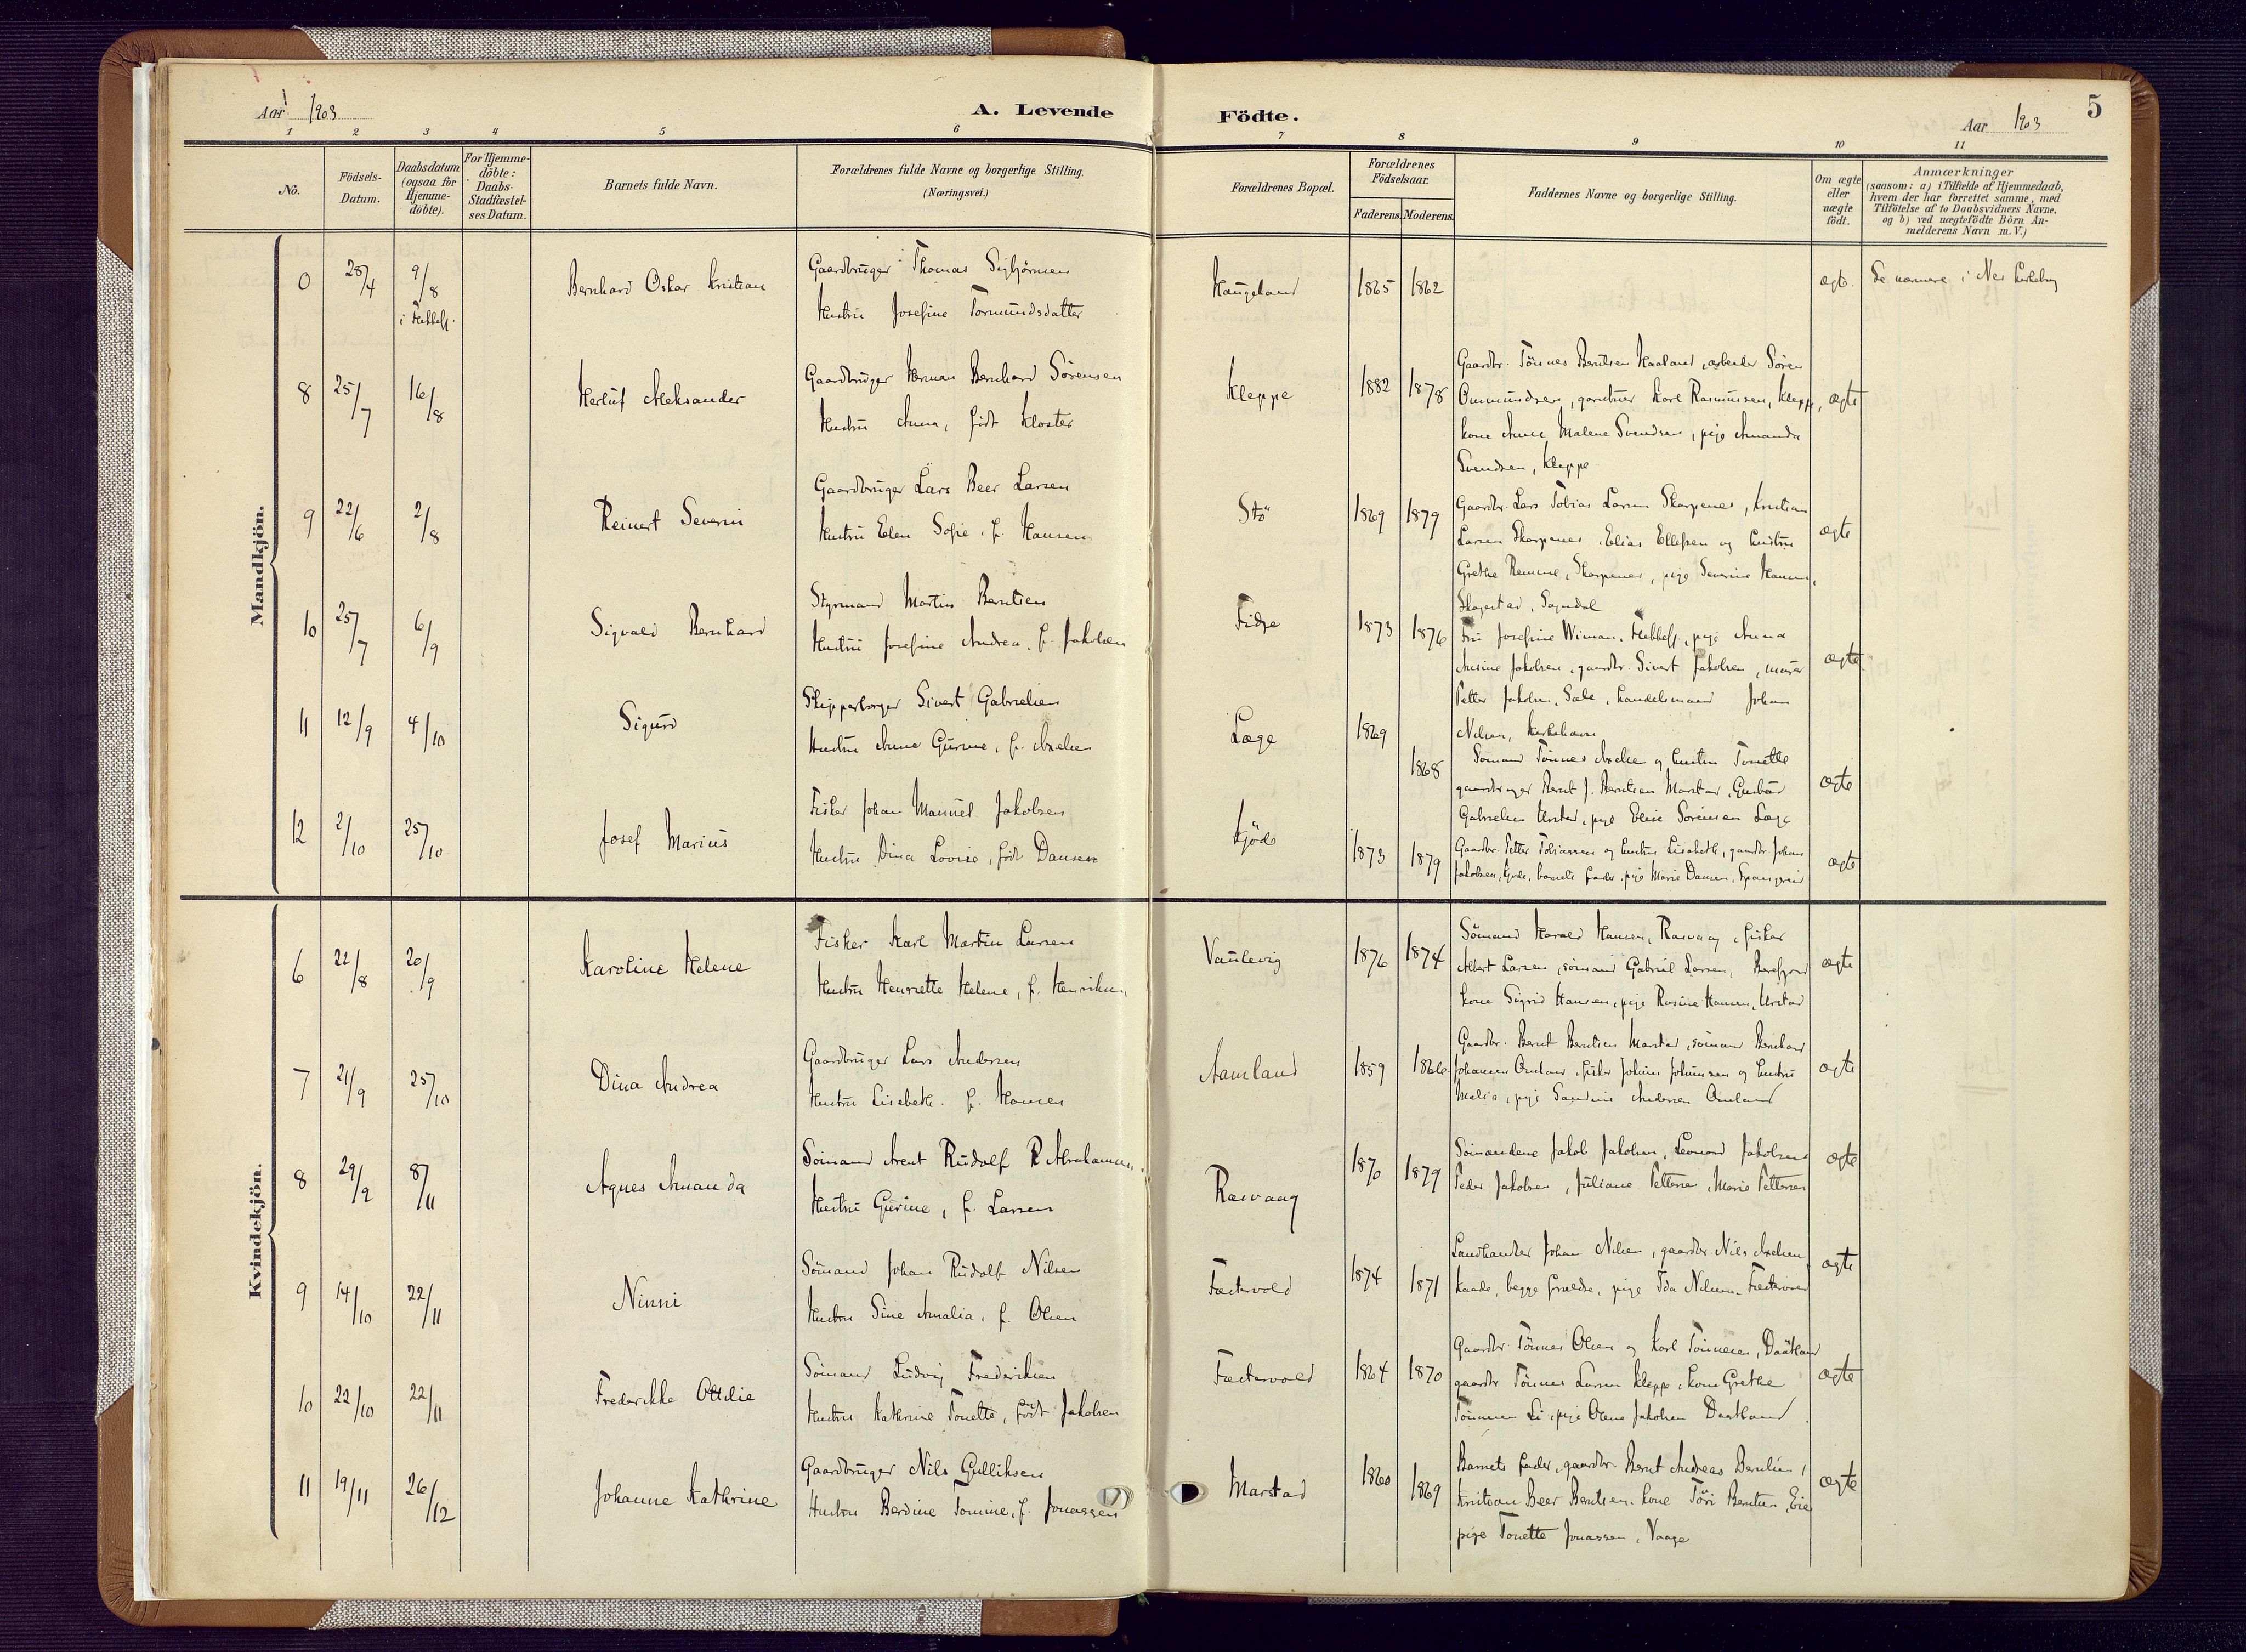 5
Aar 1903
A. Levende Födte.
Aar 1903
1 2 3 4 5 6 7 8 9 10 11
No.
Födsels-Datum.
Daabsdatum (ogsaa for Hjemme-döbte).
For Hjemme-döbte: Daabs-Stadfæstel-ses Datum.
Barnets fulde Navn.
Forældrenes fulde Navne og borgerlige Stilling. (Næringsvei.)
Forældrenes Bopæl.
Forældrenes Födselsaar.
Faderens. Moderens.
Faddernes Navne og borgerlige Stilling.
Om ægte eller uægte födt.
Anmærkninger
(saasom: a) i Tilfælde af Hjemmedaab,
hvem der har forrettet samme, med
Tilföielse af to Daabsvidners Navne,
og b) ved uægtefödte Börn An-
melderens Navn m. V.)
Mandkjön.
0 28/4 9/8 i Flekkefj. Bernhard Oskar Kristian
Gaardbruger Thomas Sigbjörnsen
Hustru Josefine Tormundsdatter
Haugeland 1865 1862
ægte
Se nærmere i Nes kirkebog
8 25/7 16/8 Herluf Aleksander
Gaardbruger Herman Bernhard Sörensen
Hustru Anna, födt Kloster
Kleppe 1882 1878
Gaardbr. Tönnes Berntsen Haaland, arbeider Sören
Ommundsen, garntner Karl Rasmussen, Kleppe,
kone Anne Malene Svendsen, pige Amanda
Svendsen, Kleppe
ægte
9 22/6 2/8 Reinert Severin
Gaardbruger Lars Beer Larsen
Hustru Elen Sofie, f. Hansen
Stö 1869 1879
Gaardbr. Lars Tobias Larsen Skarpenes, Kristian
Larsen Skarpenes, Elias Ellefsen og hustru
Grethe Remme, Skarpenes, pige Severine Hansen,
Skogestad, Sogndal
ægte
10 25/7 6/9 Sigvald Bernhard
Styrmand Martin Berntsen
Hustru Josefine Andrea, f. Jakobsen
Fidje 1873 1876
Fru Josefine Wiman, Flekkefj., pige Anna
Ausine Jakobsen, gaardbr. Sivert Jakobsen, murer
Petter Jakobsen, handelsmand Johan
Nilsen, Kirkehavn
ægte
11 12/9 4/10 Sigurd
Skipperborger Sivert Gabrielsen
Hustru Anne Gurine, f. Axelsen
Læge 1869 1868
Sömand Tönnes Axelsen og hustru Tonette
gaardbruger Bernt J. Berntsen Marstad,
Gabrielsen Urstad, pige Elise Sörensen Læge
ægte
12 2/10 25/10 Josef Marius
Fisker Johan Manuel Jakobsen
Hustru Dina Lovise, födt Dansen
Kjöde 1873 1879
Gaardbr. Petter Tobiassen og hustru Lisabeth, gaardbr. Johan
Jakobsen, Kjöde, barnets fader, pige Marie Dansen, Spangereid
ægte
Kvindekjön.
6 22/8 20/9 Karoline Helene
Fisker Karl Martin Larsen
Hustru Henriette Helene, f. Henriksen
Vaulevig 1876 1874
Sömand Harald Hansen, Rasvaag, fisker
Albert Larsen, sömand Gabriel Larsen, Berefjord
kone Sigrid Hansen, pige Rosine Hansen, Urstad
ægte
7 21/9 25/10 Dina Andrea
Gaardbruger Lars Andersen
Hustru Lisebeth f. Hansen
Aamland 1859 1866
Gaardbr. Bernt Berntsen Marstad, sömand Bernhard
Johannes Omland, fisker Johan Johnsen og hustru
Malia, pige Sandrine Andersen Omland
ægte
8 29/9 8/11 Agnes Amanda
Sömand Arent Rudolf R Abrahamsen
Hustru Gurine, f. Larsen
Rasvaag 1870 1879
Sömændene Jakob Jakobsen, Leonard Jakobsen
Peder Jakobsen, Juliane Pettersen, Marie Pettersen
ægte
9 14/10 22/11 Ninni
Sömand Johan Rudolf Nilsen
Hustru Sine Amalia, f. Olsen
Fæstervold 1874 1871
Landhandler Johan Nilsen, gaardbr. Nils Axelsen
Kaade, begge forældre, pige Ida Nilsen, Festervold
ægte
10 22/10 22/11 Frederikke Ottilie
Sömand Ludvig Frederiksen
Hustru Kathrine Tonette, födt Jakobsen
Fæstervold 1864 1870
Gaardbr. Tönnes Olsen og Karl Tönnesen, Daatland
gaardbr. Tönnes Larsen Kleppe, kone Grethe
Tönnesen Li, pige Olene Jakobsen Daatland
ægte
11 19/11 26/12 Johanne Kathrine
Gaardbruger Nils Gulliksen
Hustru Berdine Tomine, f. Jonassen
Marstad 1860 1869
Barnets fader, gaardbr. Bernt Andreas Berntsen,
Kristian Beer Berntsen, kone Töri Berntsen, Eie
pige Tonette Jonassen, Vaage
ægte